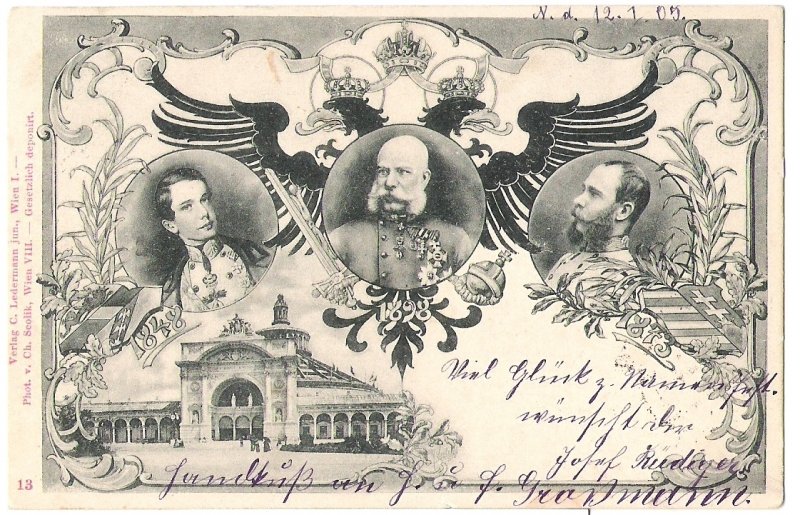 N. d. 12. 1. 05.
Verlag C. Ledermann jun., Wien I. —
Phot. v. Ch. Scolik, Wien VIII. — Gesetzlich deponirt.
1848
1898
1873
Viel Glück z. Namensfest.
wünscht der
Josef Rüdiger
Handkuß an H. u. F. Großmann.
13